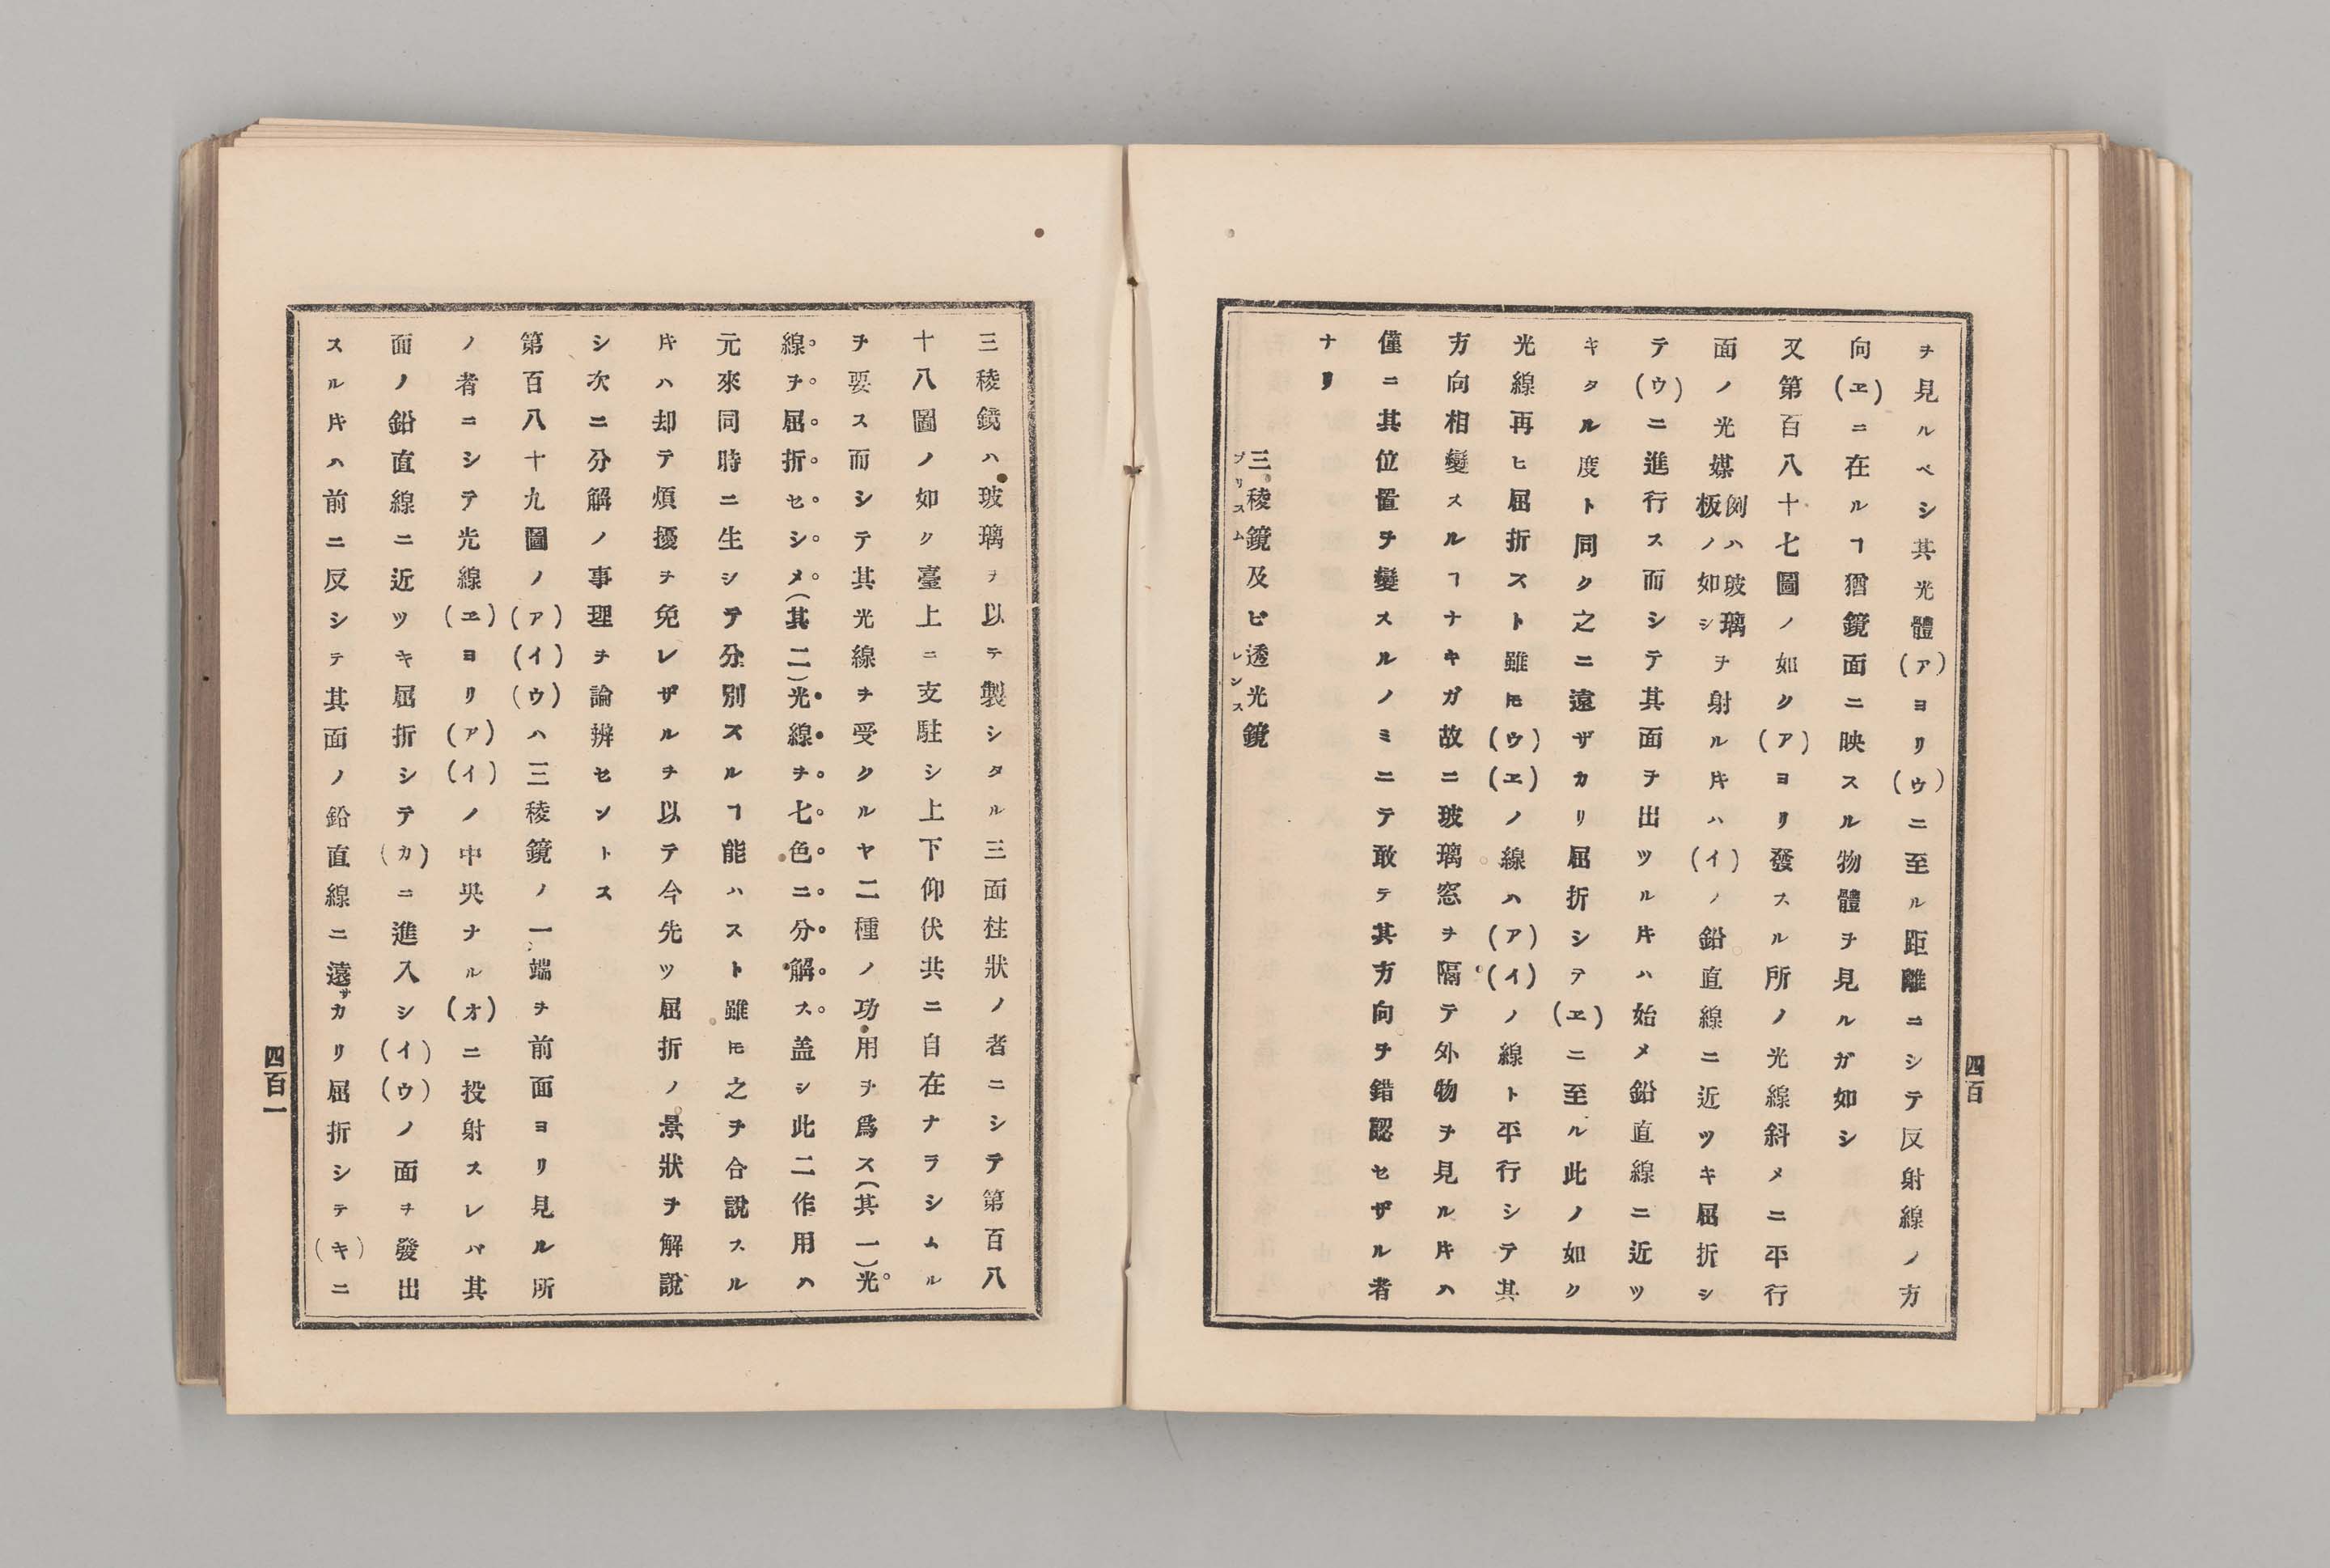 ヲ見ルベシ其光體(ア)ヨリ(ウ)ニ至ル距離ニシテ反射線ノ方
向(ヱ)ニ在ルヿ猶鏡面ニ映スル物體ヲ見ルガ如シ
又第百八十七圖ノ如ク(ア)ヨリ發スル所ノ光線斜メニ平行
面ノ光媒例ハ玻璃板ノ如シヲ射ル𪜈ハ(イ)ノ鉛直線ニ近ツキ屈折シ
テ(ウ)ニ進行ス而シテ其面ヲ出ツル𪜈ハ始メ鉛直線ニ近ツ
キタル度ト同ク之ニ遠ザカリ屈折シテ(ヱ)ニ至ル此ノ如ク
光線再ヒ屈折スト雖𪜈(ウ)(ヱ)ノ線ハ(ア)(イ)ノ線ト平行シテ其
方向相變スルヿナキガ故ニ玻璃窓ヲ隔テ外物ヲ見ル𪜈ハ
僅ニ其位置ヲ變スルノミニテ敢テ其方向ヲ錯認セザル者
ナリ
三稜鏡及ビ透光鏡
プリスム
レンス
四百
三稜鏡ハ玻璃ヲ以テ製シタル三面柱狀ノ者ニシテ第百八
十八圖ノ如ク臺上ニ支駐シ上下仰伏共ニ自在ナラシムル
ヲ要ス而シテ其光線ヲ受クルヤ二種ノ功用ヲ爲ス(其一)光
線ヲ屈折セシメ(其二)光線ヲ七色ニ分解ス盖シ此二作用ハ
元來同時ニ生シテ分別スルヿ能ハスト雖𪜈之ヲ合說スル
𪜈ハ却テ煩擾ヲ免レザルヲ以テ今先ツ屈折ノ景狀ヲ解說
シ次ニ分解ノ事理ヲ論辨セントス
第百八十九圖ノ(ア)(イ)(ウ)ハ三稜鏡ノ一端ヲ前面ヨリ見ル所
ノ者ニシテ光線(ヱ)ヨリ(ア)(イ)ノ中央ナル(オ)ニ投射スレバ其
面ノ鉛直線ニ近ツキ屈折シテ(カ)ニ進入シ(イ)(ウ)ノ面ヲ發出
スル𪜈ハ前ニ反シテ其面ノ鉛直線ニ遠ザカリ屈折シテ(キ)ニ
四百一